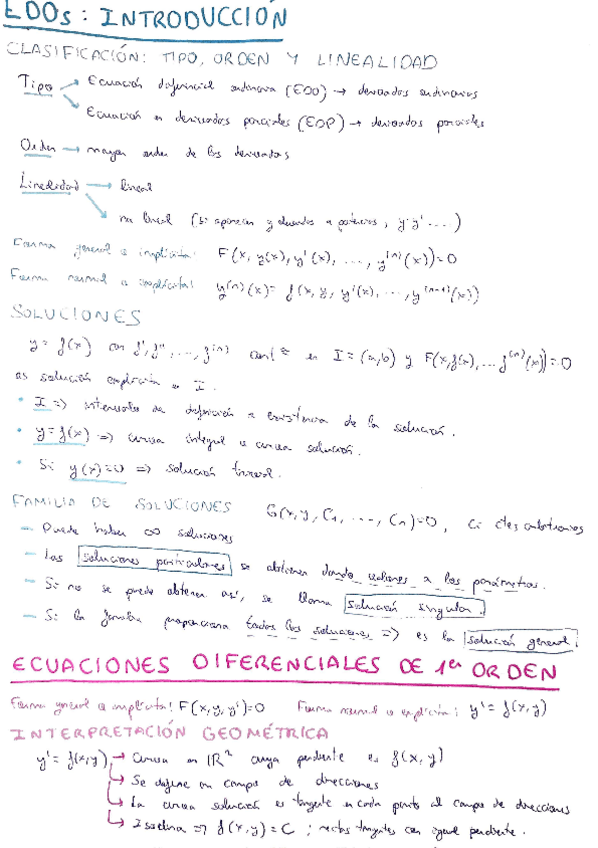 EDOs: INTRODUCCIÓN
CLASIFICACIÓN: TIPO, ORDEN Y LINEALIDAD
Tipo → Ecuación diferencial ordinaria (EDO) → derivadas ordinarias
→ Ecuación en derivadas parciales (EDP) → derivadas parciales
Orden → mayor orden de las derivadas
Linealidad → lineal
→ no lineal (si aparecen y elevados a potencias, y·y' ....)
Forma general o implícita: F(x, y(x), y'(x), ..., y⁽ⁿ⁾(x))=0
Forma normal o explícita: y⁽ⁿ⁾(x) = f(x, y, y'(x), ..., y⁽ⁿ⁻¹⁾(x))
SOLUCIONES
y = f(x) con f', f'', ..., f⁽ⁿ⁾ cont en I = (a,b) y F(x, f(x), ... f⁽ⁿ⁾(x))=0
es solución explícita en I.
• I => intervalo de definición o existencia de la solución.
• y=f(x) => curva integral o curva solución.
• Si y(x)=0 => solución trivial.
FAMILIA DE SOLUCIONES G(x, y, C₁, ..., Cₙ)=0, Ci ctes arbitrarias
– Puede haber ∞ soluciones
– Las soluciones particulares se obtienen dando valores a los parámetros.
– Si no se puede obtener así, se llama solución singular.
– Si la familia proporciona todas las soluciones => es la solución general.
ECUACIONES DIFERENCIALES DE 1er ORDEN
Forma general o implícita: F(x, y, y')=0 Forma normal o explícita: y' = f(x, y)
INTERPRETACIÓN GEOMÉTRICA
y' = f(x, y) → Curva en ℝ² cuya pendiente es f(x, y)
→ Se define un campo de direcciones
→ La curva solución es tangente en cada punto al campo de direcciones
→ Isoclina => f(x, y) = C ; rectas tangentes con igual pendiente.